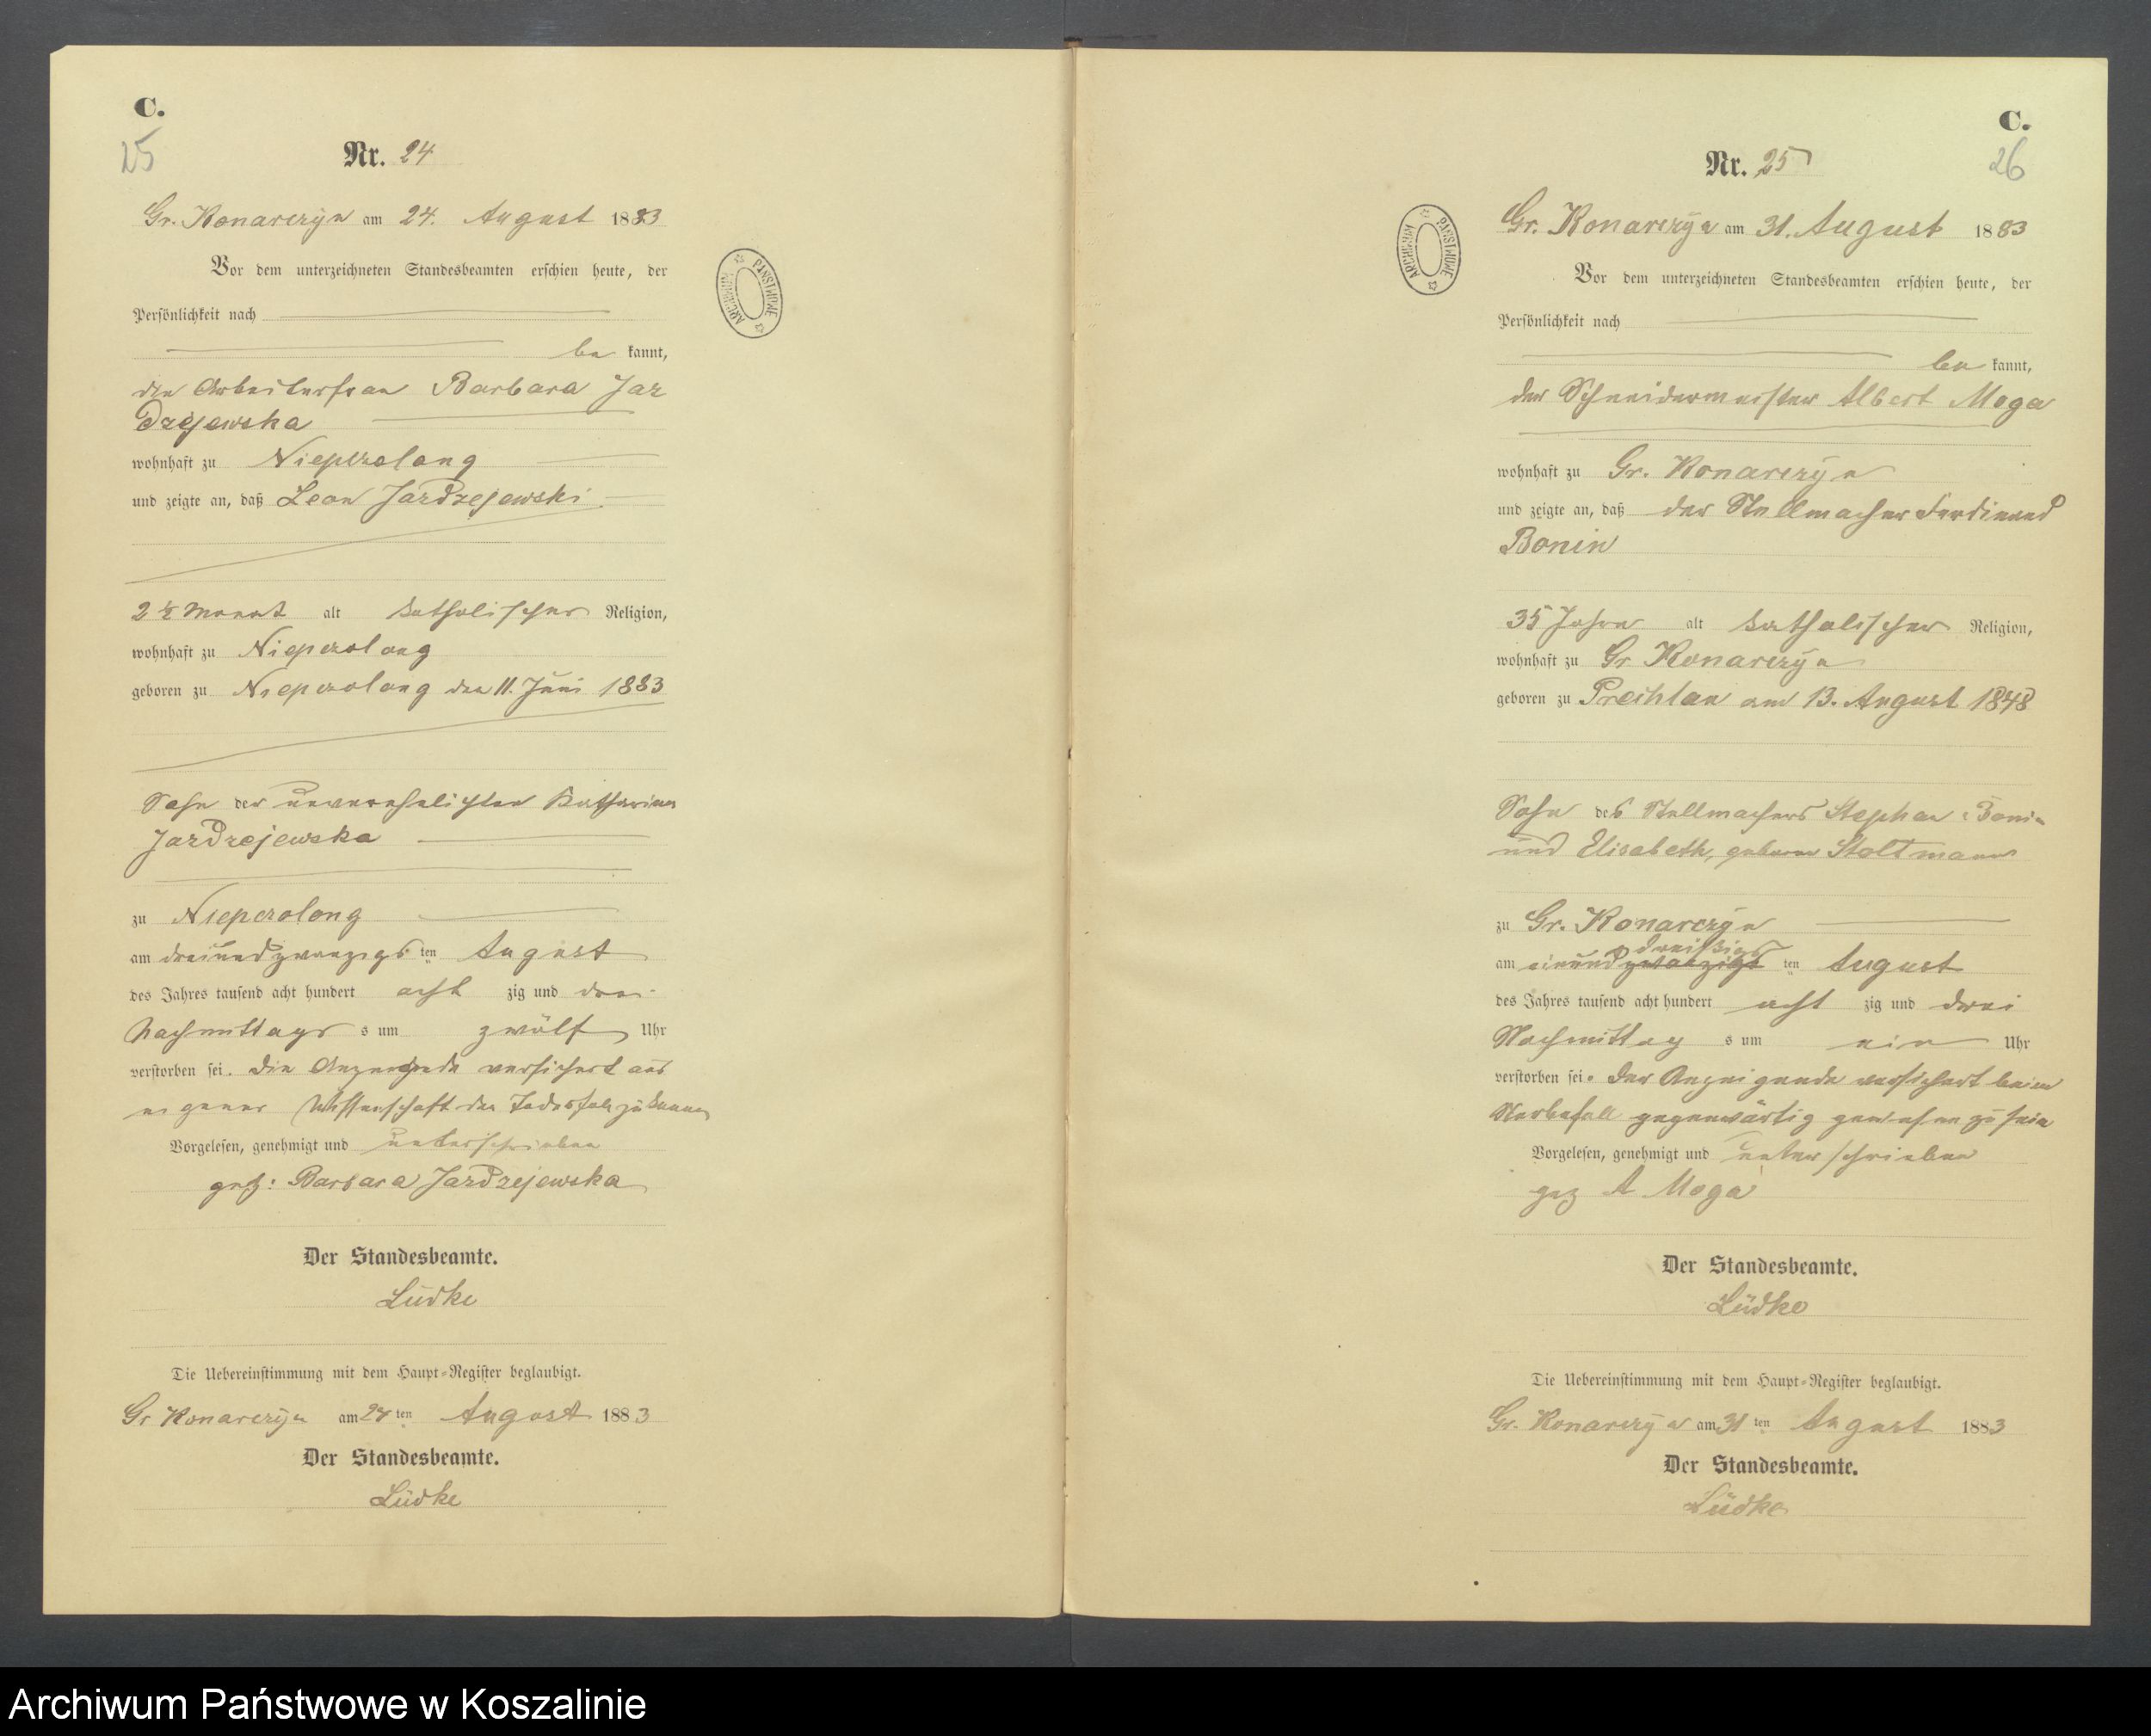 C.
25
Nr. 24
Gr. Konarczyn am 24. August 1883
Vor dem unterzeichneten Standesbeamten erschien heute, der
Persönlichkeit nach
be kannt,
die Arbeiterfrau Barbara Jar
drzejewska
wohnhaft zu Niepczolong
und zeigte an, daß Leon Jardzejewski
2 1/2 Monat alt katholischer Religion,
wohnhaft zu Niepczolong
geboren zu Niepczolong den 11. Juni 1883
Sohn der unverehelichten Katharina
Jardzejewska
zu Niepczolong
am dreiundzwanzigs ten August
des Jahres tausend acht hundert acht zig und drei
Nachmittags s um zwölf Uhr
verstorben sei. Die Anzeigende versichert aus
eigener Wissenschaft den Todesfall zu kennen
Vorgelesen, genehmigt und unterschrieben
gez: Barbara Jardzejewska
Der Standesbeamte.
Lüdke
Die Uebereinstimmung mit dem Haupt-Register beglaubigt.
Gr Konarczyn am 24 ten August 1883
Der Standesbeamte.
Lüdke
ARCHIWUM PAŃSTWOWE
C.
26
Nr. 25
Gr. Konarczyn am 31. August 1883
Vor dem unterzeichneten Standesbeamten erschien heute, der
Persönlichkeit nach
be kannt,
der Schneidermeister Albert Moga
wohnhaft zu Gr. Konarczyn
und zeigte an, daß der Stellmacher Ferdinand
Bonin
35 Jahre alt katholischer Religion,
wohnhaft zu Gr Konarczyn
geboren zu Prechlau am 13. August 1848
Sohn des Stellmachers Stephan Bonin
und Elisabeth, geborene Stoltmann
zu Gr. Konarczyn
dreißigs
am einund zwanzigs ten August
des Jahres tausend acht hundert acht zig und drei
Nachmittag s um ein Uhr
verstorben sei. Der Anzeigende versichert beim
Sterbefall gegenwärtig gewesen zu sein
Vorgelesen, genehmigt und unterschrieben
gez A Moga
Der Standesbeamte.
Lüdke
Die Uebereinstimmung mit dem Haupt-Register beglaubigt.
Gr. Konarczyn am 31 ten August 1883
Der Standesbeamte.
Lüdke
ARCHIWUM PAŃSTWOWE
Archiwum Państwowe w Koszalinie